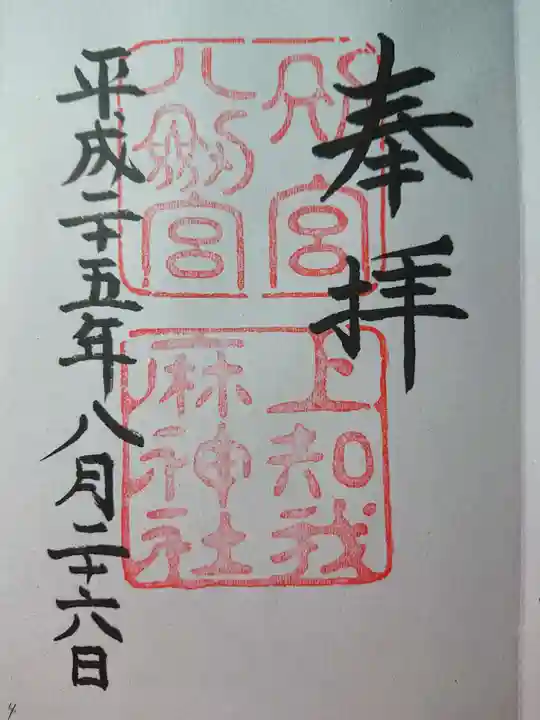 奉拝
別宮
八剣宮
上知我
麻神社
平成二十五年八月二十六日